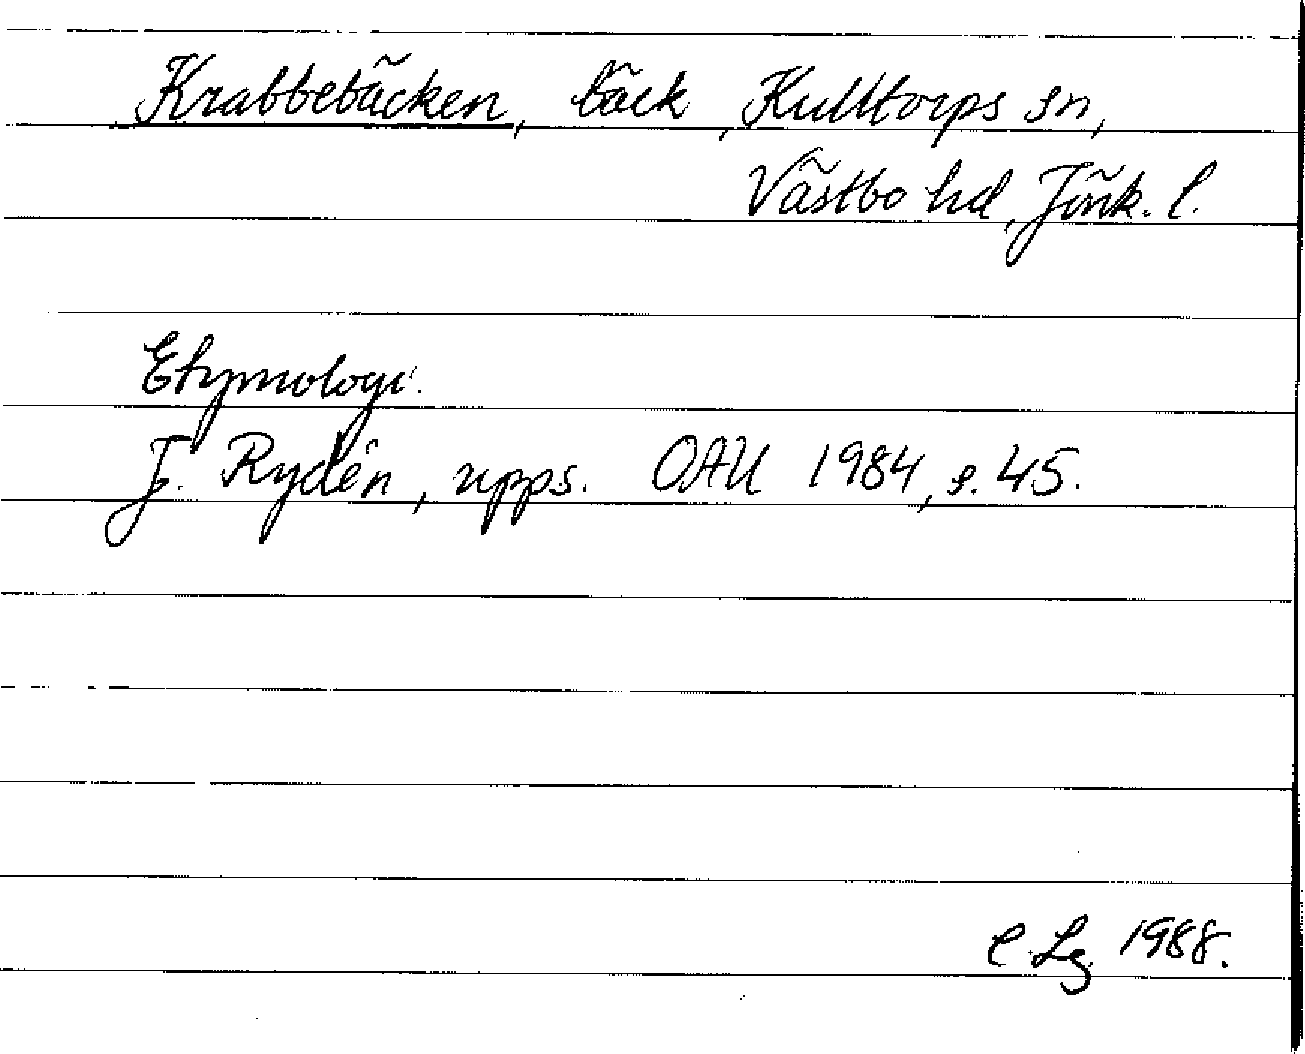 Krabbebäcken, bäck, Kulltorps sn,
Västbo hd, Jönk. l.
Etymologi.
J. Rydén, upps. OAU 1984, s. 45.
C Lg 1988.